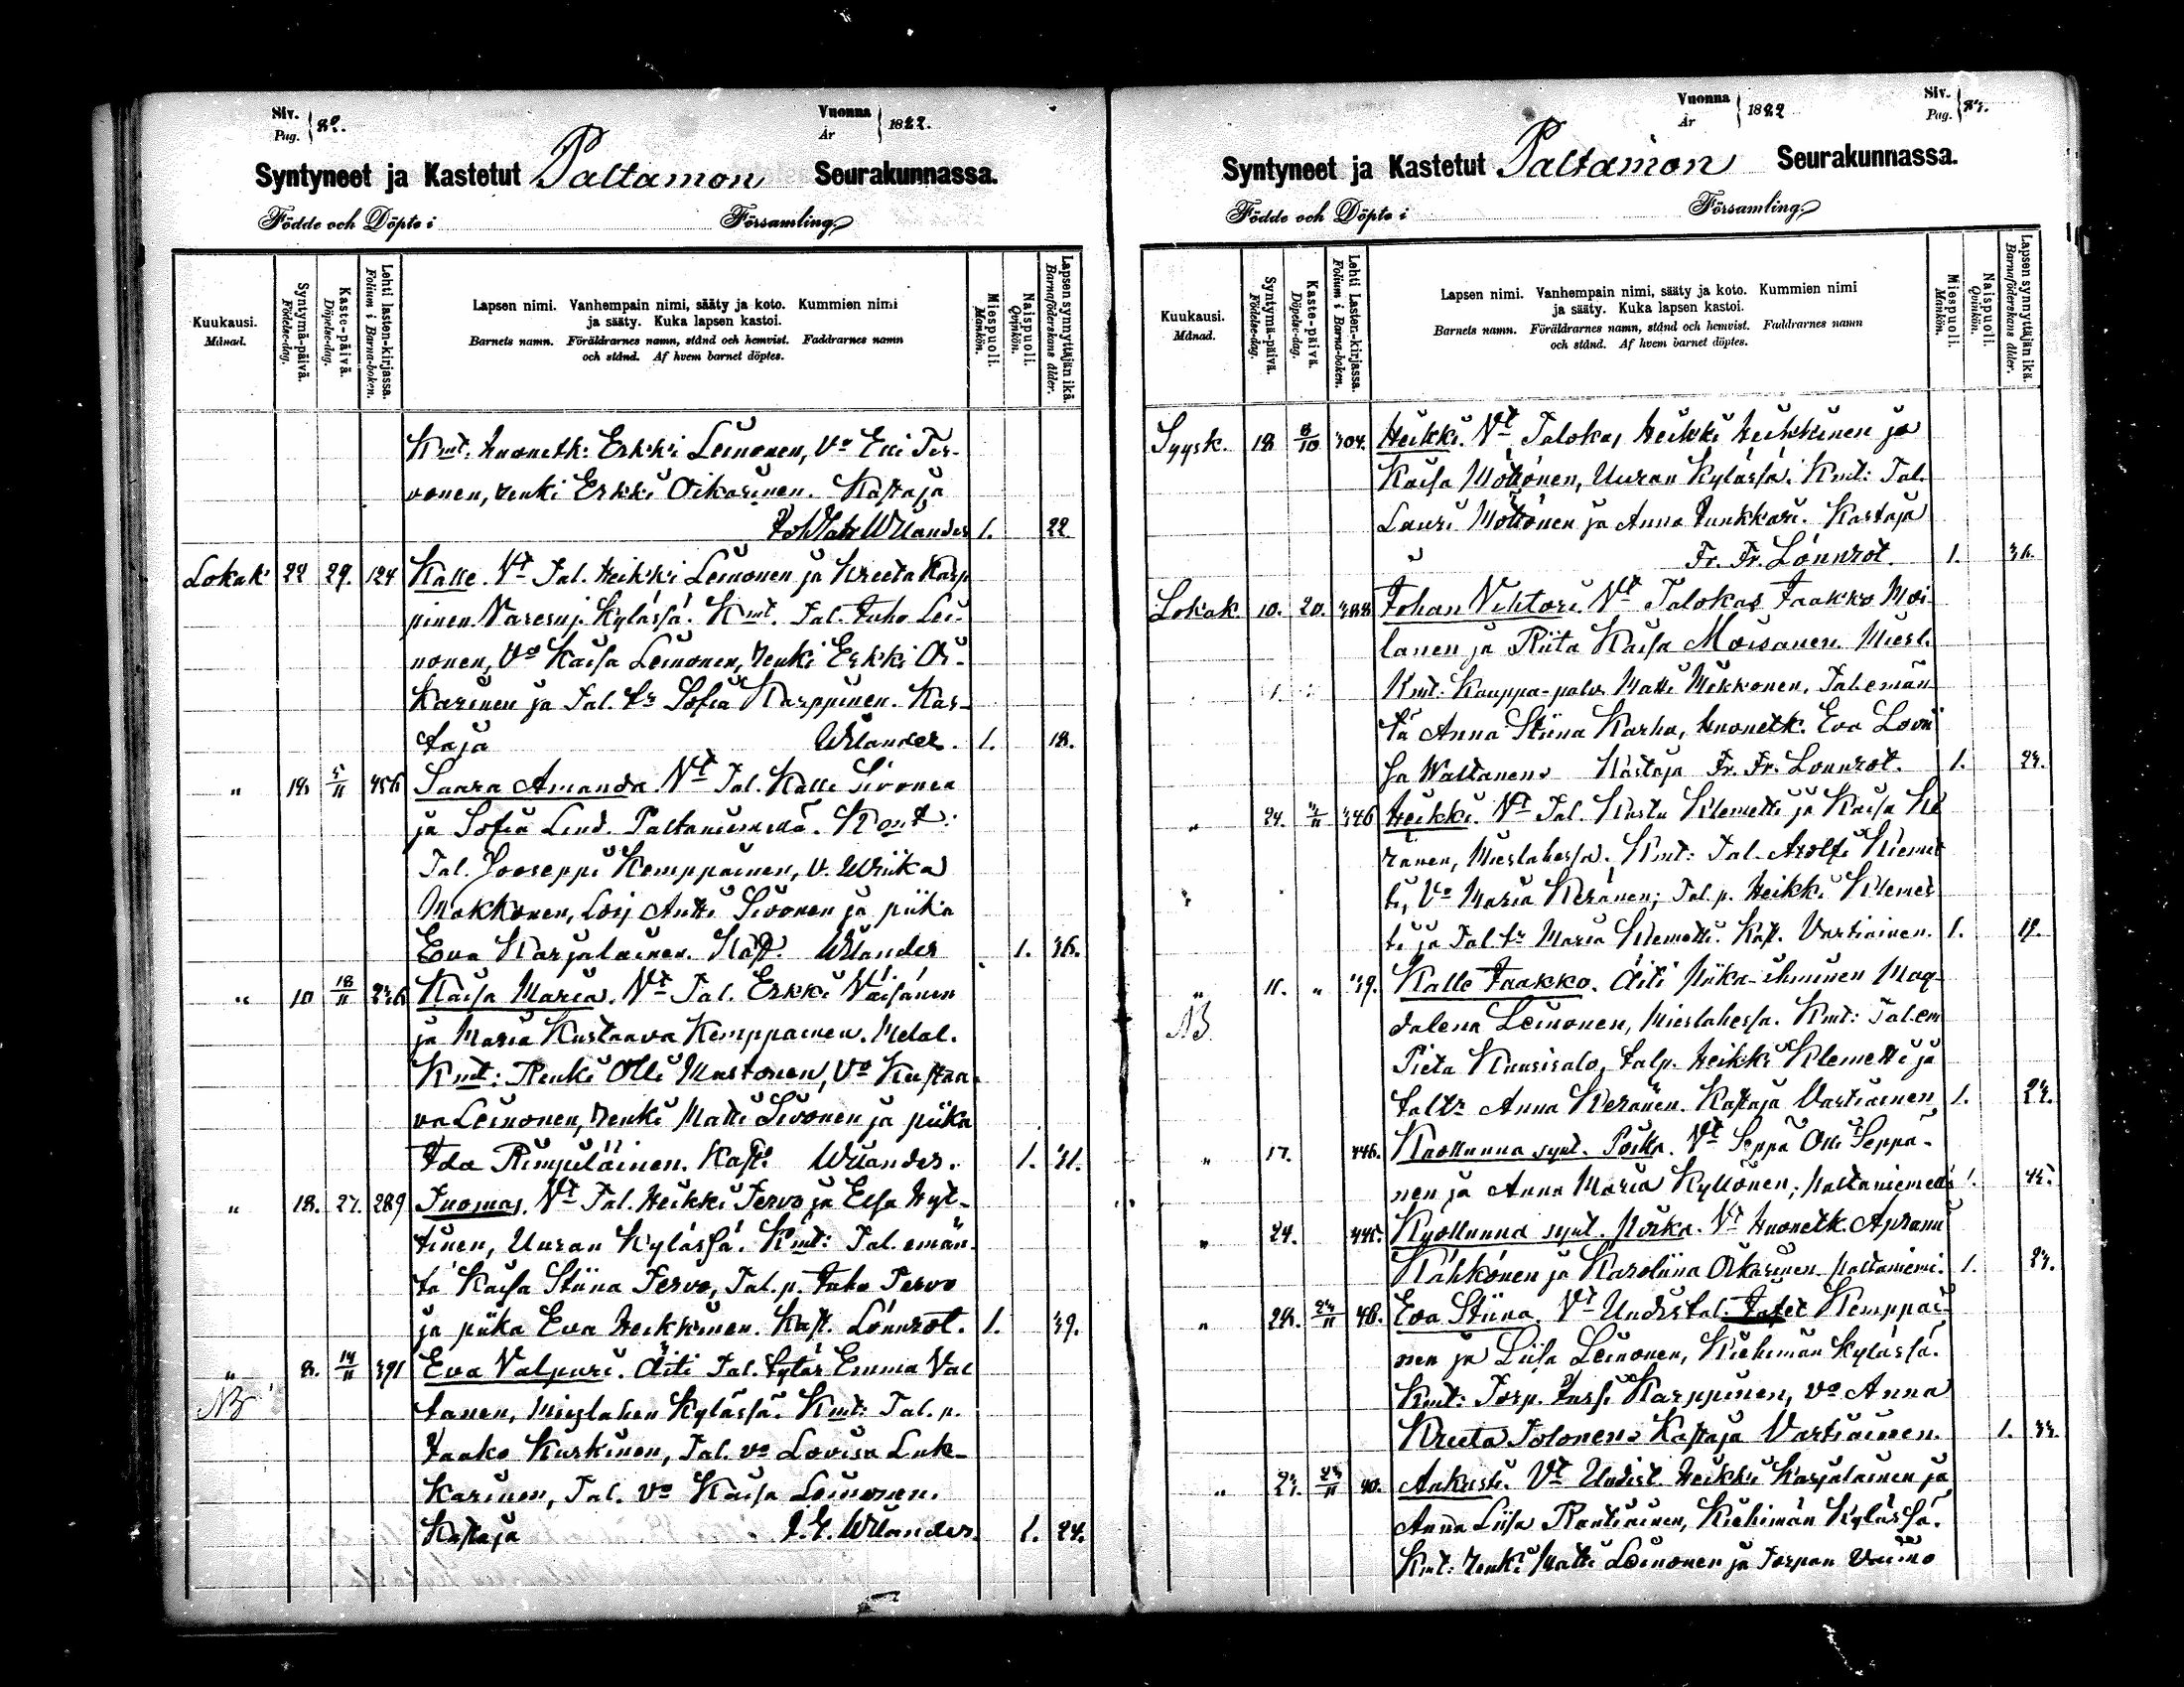 Siv.
Pag. 80.
Vuonna
År 1882.
Syntyneet ja Kastetut Paltamon Seurakunnassa.
Födde och Döpte i Församling.
Kuukausi.
Månad.
Syntymä-päivä.
Födelse-dag.
Kaste-päivä.
Döpelse-dag.
Lehti lasten-kirjassa.
Folium i Barna-boken.
Lapsen nimi. Vanhempain nimi, sääty ja koto. Kummien nimi
ja sääty. Kuka lapsen kastoi.
Barnets namn. Föräldrarnes namn, stånd och hemvist. Faddrarnes namn
och stånd. Af hvem barnet döptes.
Miespuoli.
Mankön.
Naispuoli.
Qvinkön.
Lapsen synnyttäjän ikä.
Barnaföderskans ålder.
Kmt. huonetk: Erkki Leinonen, Vo Eeri Ter-
vonen, renki Erkki Oikarinen. Kastaja
Wilander 1. 22
Lokak 22 29. 124 Kalle. Vt Tal. Heikki Leinonen ja Kreeta Karp
pinen Varesnj. Kylässä. Kmt. Tal. Juho Lei-
nonen, Vo Kaisa Leinonen, renki Erkki Oi-
karinen ja Tal. tr Sofia Karppinen. Kas-
taja Wilander. 1. 18.
" 5/11 456 Saara Amanda. Vt Tal. Kalle Sivonen
ja Sofia Lind. Paltaniemellä. Kmt:
Tal. Jooseppi Kemppainen, V. Wriika
Makkonen, Loij Antti Sivonen ja piika
Eva Karjalainen. Kast. Wilander 1. 36.
" 10 18/11 236 Kaisa Maria. Vt Tal. Erkki Väisänen
ja Maria Kustaava Kemppainen. Melal.
Kmt: Renki Olli Mustonen, Vo Kustaa-
va Leinonen, renki Matti Sivonen ja piika
Ida Rimpiläinen. Kast. Wilander. 1. 31.
" 18. 27. 289 Tuomas. Vt Tal. Heikki Tervo ja Elsa Hyt-
tinen, Uuran Kylässä. Kmt: Tal. emän-
tä Kaisa Stiina Tervo, Tal. p. Juho Tervo
ja piika Eva Heikkinen. Kast. Lönnrot. 1. 39.
" 8. 14/11 391 Eva Valpuri. Äiti Tal. tytär Emma Val
NB tanen, Mieslahen Kylässä. Kmt: Tal. p.
Jaako Kurkinen, Tal. vo Lovisa Luk-
karinen, Tal. vo Kaisa Leinonen.
Kastaja Wilander. 1. 24.
Vuonna
År 1882
Siv.
Pag. 81.
Syntyneet ja Kastetut Paltamon Seurakunnassa.
Födde och Döpte i Församling.
Kuukausi.
Månad.
Syntymä-päivä.
Födelse-dag.
Kaste-päivä.
Döpelse-dag.
Lehti Lasten-kirjassa.
Folium i Barna-boken.
Lapsen nimi. Vanhempain nimi, sääty ja koto. Kummien nimi
ja sääty. Kuka lapsen kastoi.
Barnets namn. Föräldrarnes namn, stånd och hemvist. Faddrarnes namn
och stånd. Af hvem barnet döptes.
Miespuoli.
Mankön.
Naispuoli.
Qvinkön.
Lapsen synnyttäjän ikä.
Barnaföderskans ålder.
Syysk. 18 8/10 304. Heikki. Vt Talokas Heikki Heikkinen ja
Kaisa Möttönen, Uuran Kylässä. Kmt: Tal.
Lauri Möttönen ja Anna Junkkari. Kastaja
Fr. Fr. Lönnrot. 1. 36.
Lokak. 10. 20. 388 Johan Vihtori. Vt Talokas Jaakko Moi
lanen ja Riita Kaisa Moisanen. Miesl.
Kmt. Kauppa-palv. Matti Mikkonen, Tal emän
tä Anna Stiina Karhu, huonetk. Eva Lovii
sa Waltanen. Kastaja Fr. Fr. Lönnrot. 1. 23.
" 24. 346 Heikki. Vt Tal. Kustu Klemetti ja Kaisa Ke
ränen, Mieslahessa. Kmt: Tal. Arolfi Klemet
ti, Vo Maria Keränen; Tal. p. Heikki Klemet
ti ja Tal. tr Maria Klemetti. Kast. Vartiainen. 1. 19.
" 11. " 39. Kalle Jaakko. Äiti Piika-ihminen Mag-
NB. dalena Leinonen, Mieslahessa. Kmt: Tal. em
Pieta Kuusisalo, talp. Heikki Klemetti ja
taltr Anna Keränen. Kastaja Vartiainen 1. 23.
" 17. 446. Kuollunna synt. Poika. Vt Seppä Olli Seppä-
nen ja Anna Maria Kyllönen, Paltaniemellä 1. 45.
" 24. 445. Kuollunna synt. Poika. Vt Huonetk. Aprami
Kähkönen ja Karoliina Oikarinen Paltaniemi. 1. 23.
" 28. 23/11 46. Eva Stiina. Vt Undistal. Jafet Kemppai-
nen ja Liisa Leinonen, Kiehimän Kylässä.
Kmt: Torp. Jussi Karppinen, vo Anna
Kreeta Tolonen. Kastaja Vartiainen. 1. 33.
" 23. 23/11 40. Aukusti. Vt Undist. Heikki Karjalainen ja
Anna Liisa Rautiainen, Kiehimän Kylässä.
Kmt: renki Matti Leinonen ja Torpan Vaimo